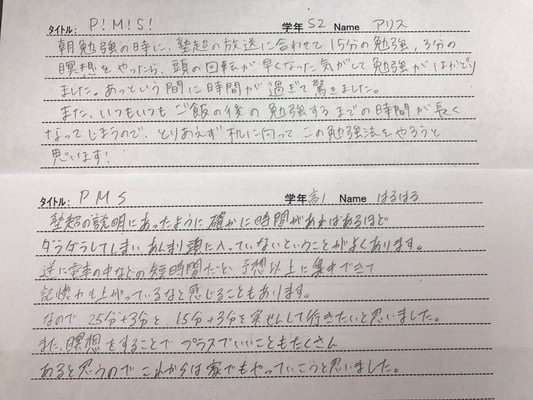 タイトル: P!M!S! 学年 S2 Name アリス
朝勉強の時に、塾超の放送に合わせて15分の勉強、3分の
瞑想をやったら、頭の回転が早くなった気がして勉強がはかどり
ました。あっという間に時間が過ぎて驚きました。
また、いつもいつもご飯の後の勉強するまでの時間が長く
なってしまうので、とりあえず机に向って、この勉強法をやろうと
思います!
タイトル: PMS 学年 高1 Name はるはる
塾超の説明にあったように確かに時間があればあるほど
ダラダラしてしまいあんまり頭に入っていないということがよくあります。
逆に電車の中などの短時間だと予想以上に集中できて
記憶力も上がっているなと感じることもあります。
なので 25分+3分を 15分+3分を実せんして行きたいと思いました。
また、瞑想をすることでプラスでいいこともたくさん
あると思うのでこれからは家でもやっていこうと思いました。